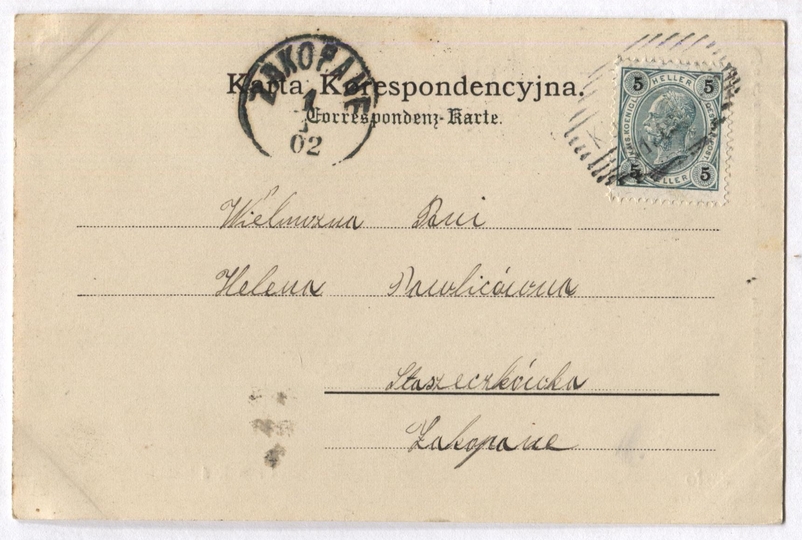 ZAKOPANE
1
1
02
Karta Korespondencyjna.
Correspondenz-Karte.
5 HELLER 5
5 HELLER 5
Wielmożna Pani
Helena Pawlicówna
Staszeczkówka
Zakopane